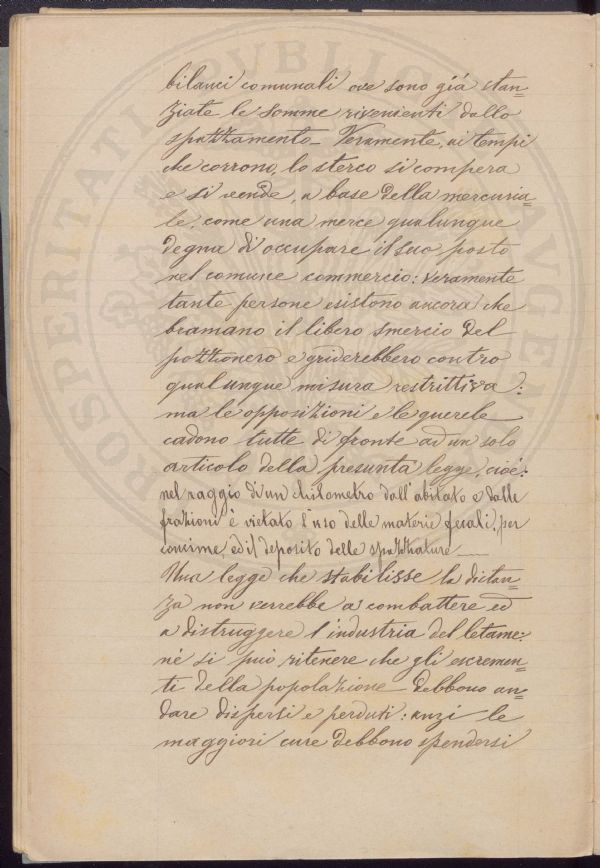 bilanci comunali ove sono già stan=
ziate le somme rivenienti dallo
spazzamento_ Veramente, ai tempi
che corrono, lo sterco si compera
e si vende, a base della mercuria=
le, come una merce qualunque
degna di occupare il suo posto
nel comune commercio: veramente
tante persone esistono ancora che
bramano il libero smercio del
pozzonero e griderebbero contro
qualunque misura restrittiva:
ma le opposizioni e le querele
cadono tutte di fronte ad un solo
articolo della presunta legge, cioè:
nel raggio di un chilometro dall'abitato e dalle
frazioni è vietato l'uso delle materie fecali, per
concime, ed il deposito delle spazzature ___
Una legge che stabilisse la distan=
za non verrebbe a combattere ed
a distruggere l'industria del letame:
nè si può ritenere che gli escremen=
ti della popolazione debbono an=
dare dispersi e perduti: anzi le
maggiori cure debbono spendersi
PROSPERITATI PVBLICAE AVGEN